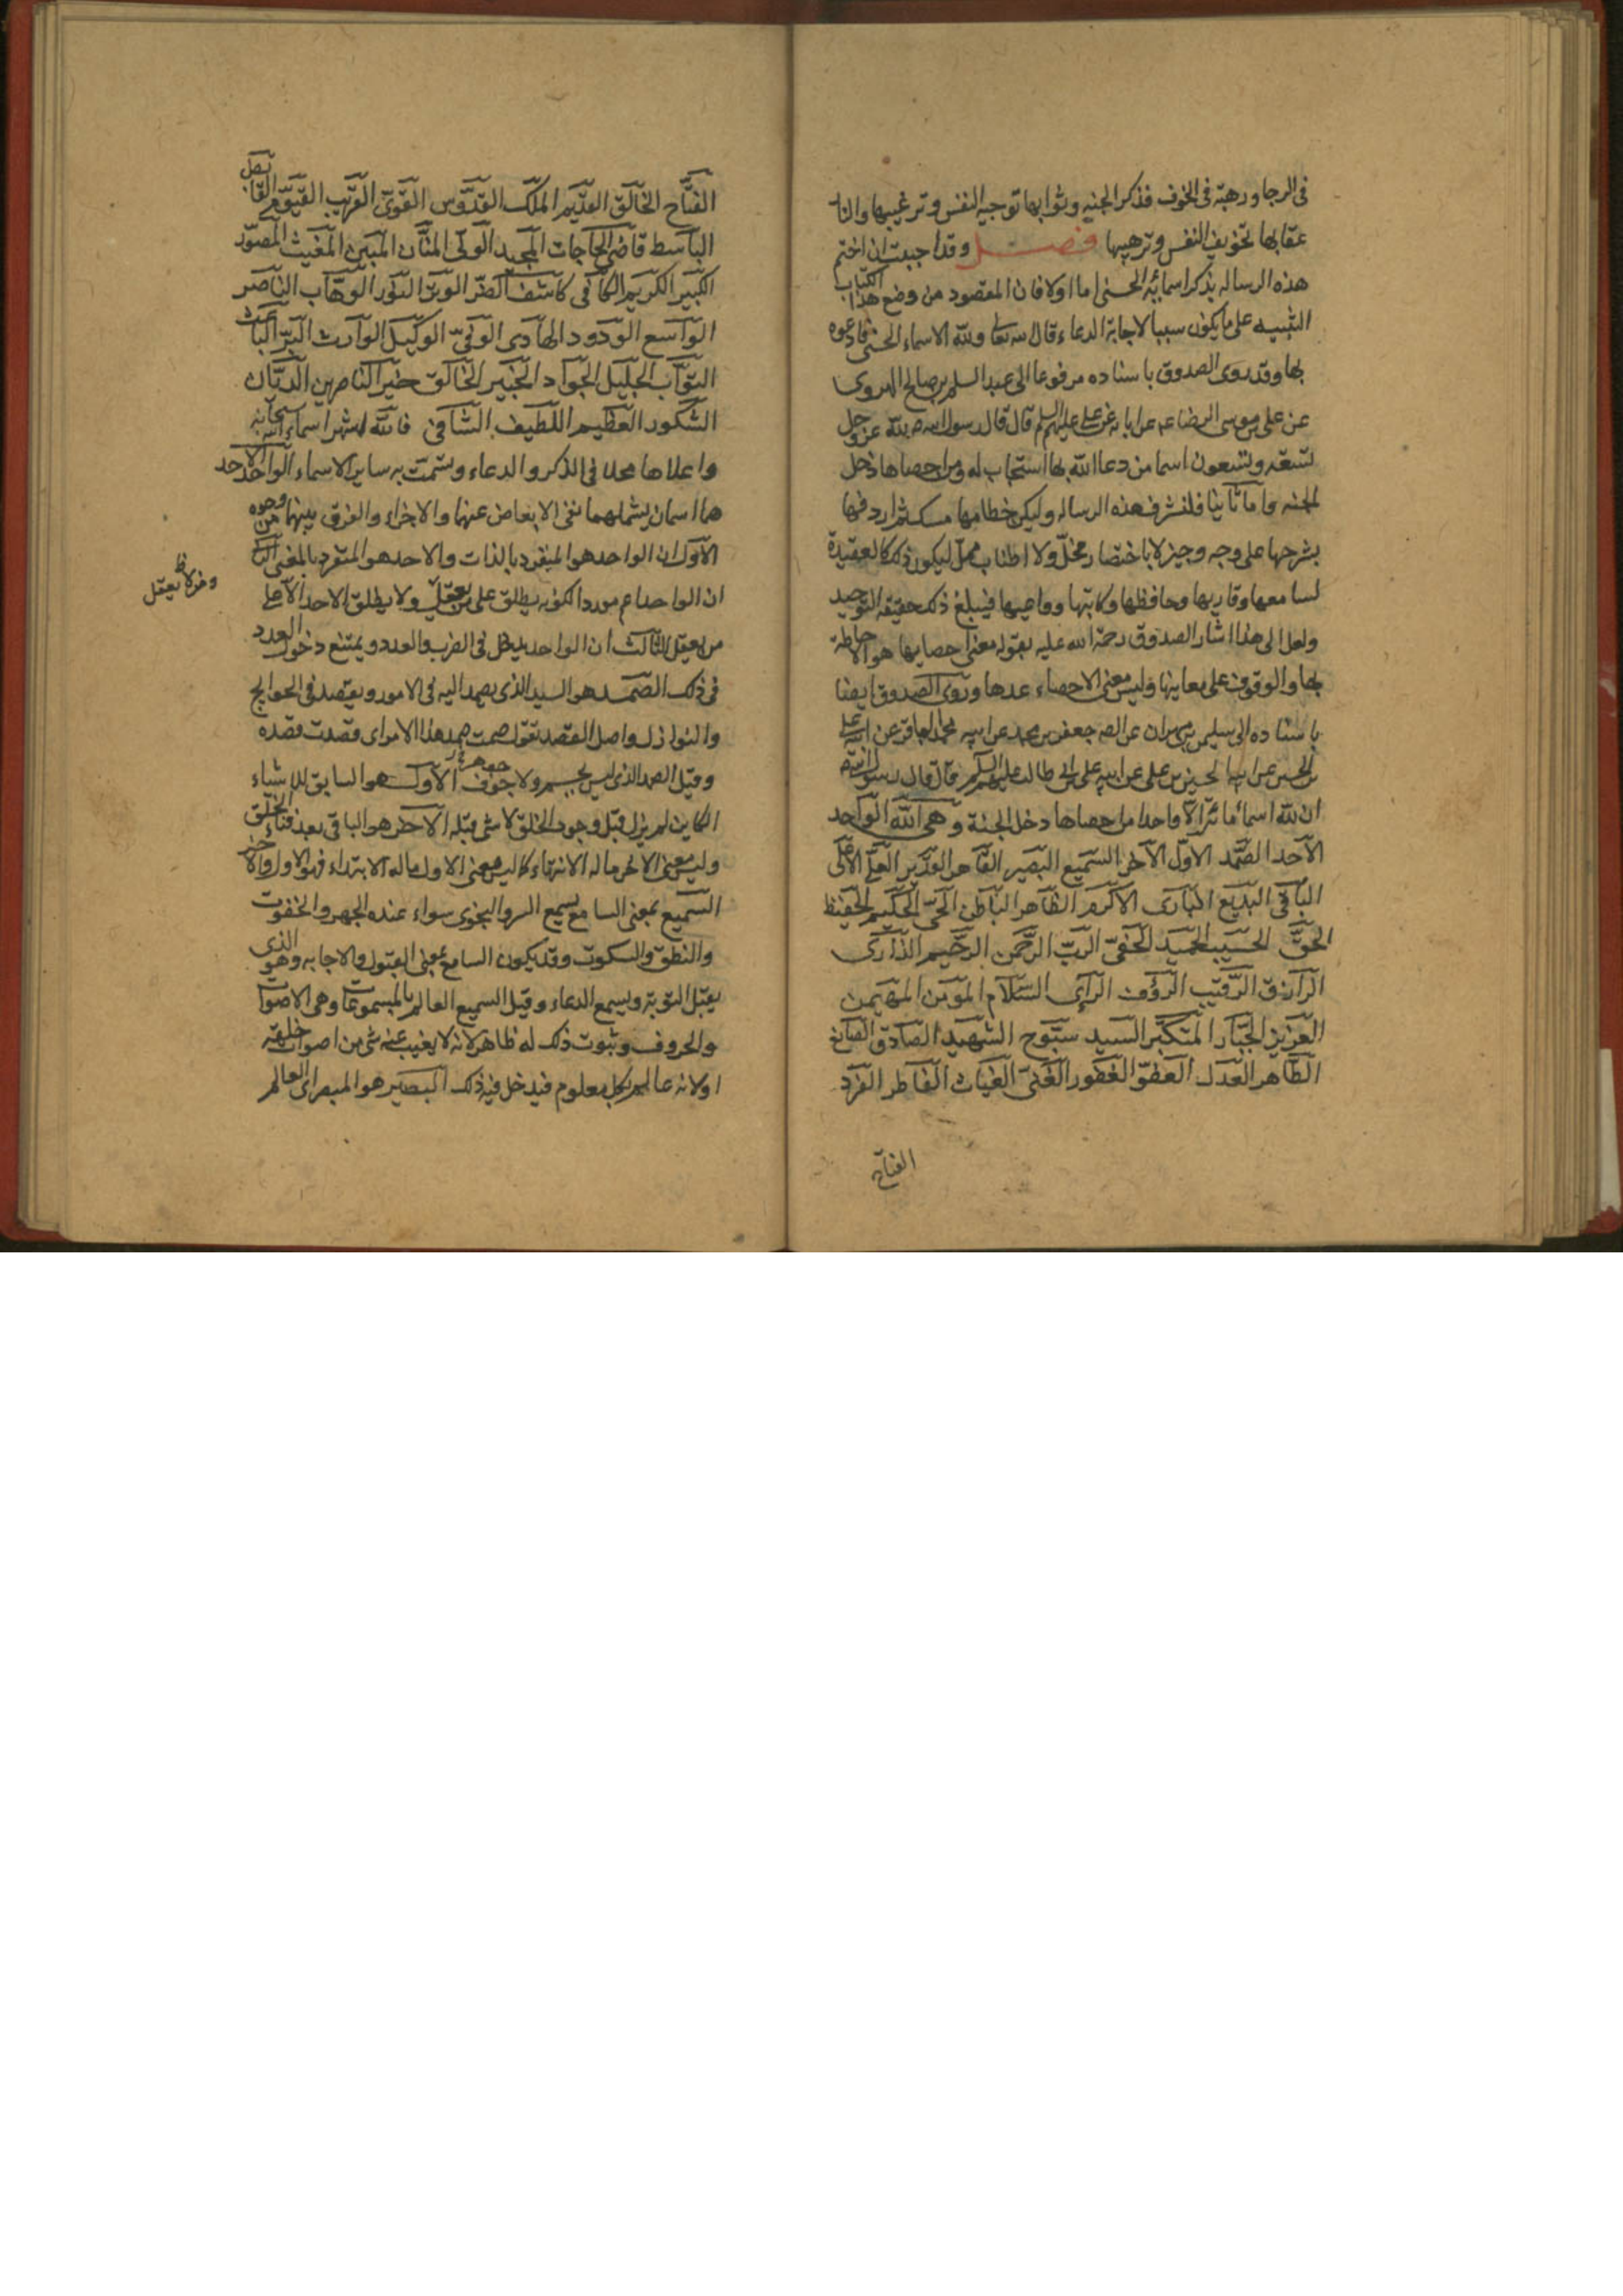 فى الرجا ورهبة فى الخوف فذكر الجنه وثوابها توجيه النفس وترغيبها والنار
عقابها تخويف النفس وترهيبها فصــل وقد احببت ان اختم
هذه الرساله بذكر اسمائه الحسنى اما اولا فان المقصود من وضع هذا الكتاب
التنبيه على ما يكون سببا لاجابة الدعاء وقال الله تعا ولله الاسماء الحسنى فادعوه
بها وقد روى الصدوق باسناده مرفوعا الى عبد السلم بن صالح الهروى
عن على بن موسى الرضا عن ابائه عن على عليهم السلم قال قال رسول الله ص لله عز وجل
تسعة وتسعون اسما من دعا الله بها استجاب له ومن احصاها دخل
الجنه واما ثانيا فلتشرف هذه الرساله وليكن ختامها مسك ثم اردفها
بشرحها على وجه وجيز لا باختصار مخل ولا اطناب ممل ليكون ذلك كالعقيدة
لسامعها وقاريها وحافظها وكاتبها وواعيها فيبلغ ذلك حقيقة التوحيد
ولعل الى هذا اشار الصدوق رحمة الله عليه بقوله معنى احصايها هو الاحاطة
بها والوقوف على معاينها وليس معنى الاحصاء عدها وروى الصدوق ايضا
باسناده الى سليمن بن مهران عن الصه جعفر بن محمد عن ابيه محمد الباقر عن ابيه على
بن الحسين عن ابيه الحسين بن على عن ابيه على بن ابى طالب عليهم السلم قال قال رسول الله ص
ان لله اسما مائة الا واحدا من احصاها دخل الجنة وهى الله الواحد
الاحد الصمد الاول الآخر السميع البصير القاهر القدير العلى الاعلى
الباقى البديع البارى الاكرم الظاهر الباطن الحى الحكيم الحفيظ
الحق الحسيب الحميد الحفى الرب الرحمن الرحيم الذارى
الرازق الرقيب الرؤف الرآى السلام المؤمن المهيمن
العزيز الجبار المتكبر السيد سبوح الشهيد الصادق الصانع
الطاهر العدل العفو الغفور الغنى الغياث الفاطر الفرد
الفتاح
الفتاح الخالق القديم الملك القدوس القوى القريب القيوم القابض
الباسط قاضى الحاجات المجيد الولى المنان المبين المغيث المصور
الكبير الكريم الكافى كاشف الضر الوتر النور الوهاب الناصر
الواسع الودود الهادى الوفى الوكيل الوارث البر الباعث
التواب الجليل الجواد الخبير الخالق خير الناصرين الديان
الشكور العظيم اللطيف الشافى فالله اشهر اسماء الله سبحانه
واعلاها محلا فى الذكر والدعاء وسمت به ساير الاسماء الواحد الاحد
هما اسمان يشملهما نفى الابعاض عنهما والاجزاء والفرق بينهما من وجوه
الاول ان الواحد هو المنفرد بالذات والاحد هو المتفرد بالمعنى الثانى
ان الواحد اعم موردا لكونه يطلق على من يعقل ولا يطلق الاحد الا على
وغير لا يعقل ظ
من يعقل الثالث ان الواحد يدخل فى الضرب والعدد ويمتنع دخول العدد
فى ذلك الصمد هو السيد الذى يصمد اليه فى الامور ويقصد فى الحوايج
والنوازل واصل القصد تقول صمدت صمد هذا الامر اى قصدت قصده
وقيل الصمد الذى ليس بجسم ولا جوف الاول هو السابق للاشياء
الكاين لم يزل قبل وجود الخلق لا شى قبله الآخر هو الباقى بعد فناء الخلق
وليس معنى الاخر ماله الانتهاء كما ليس معنى الاول ماله الابتداء فهو الاول والاخر
السميع بمعنى السامع يسمع السر والنجوى سواء عنده الجهر والخفوت
والنطق والسكوت وقد يكون السامع بمعنى القبول والاجابه وهو الذى
يقبل التوبة ويسمع الدعاء وقيل السميع العالم بالمسموعات وهى الاصوات
والحروف وثبوت ذلك له ظاهر لانه لا يغيب عنه شى من اصوات خلقه
او لانه عالم بكل معلوم فيدخل فيه ذلك البصير هو المبصر اى العالم